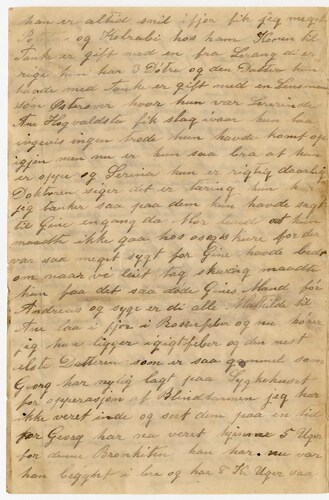 han er altid snil ifjor fik jeg meget
og Kolrabi hos ham Konen til
Tank er gift med en fra Lerang di er
rige hun har 3 Døtre og den Datter hun
havde med Tank er gift med en Lensmen
son Østerover hvor hun var Lererinde
Ane Hogvaldste fik slag ivaar hun laa
ingevis ingen trode hun havde komt op
igjen men nu er hun saa bra at hun
er oppe og Serina hun er rigtig daarlig
Doktoren siger det er taring hun
jeg tanker saa paa dem hun havde sagt
til Gine engang da Thor levde at hun
maadte ikke gaa hos os kure for der
var saa meget sygt for Gine havde bedt
om naar vi list tag maadte
hun faa det saa døde Gines Mand før
Andreas og syge er di alle Mathilde til
Ane laa i fjor i Rossefeber og nu hører
jeg hun ligger igigtfeber og den nest
elste Datteren som er saa gammel som
Georg har nylig lagt paa Sygkehuset
for opperasjon af Blindtarmen jeg har
ikke veret inde og set dem paa en tid
for Georg har nu veret hjemme 5 Uger
for denne Bronkiten han har nu var
han begynt i bra og har 8 K Ugen saa